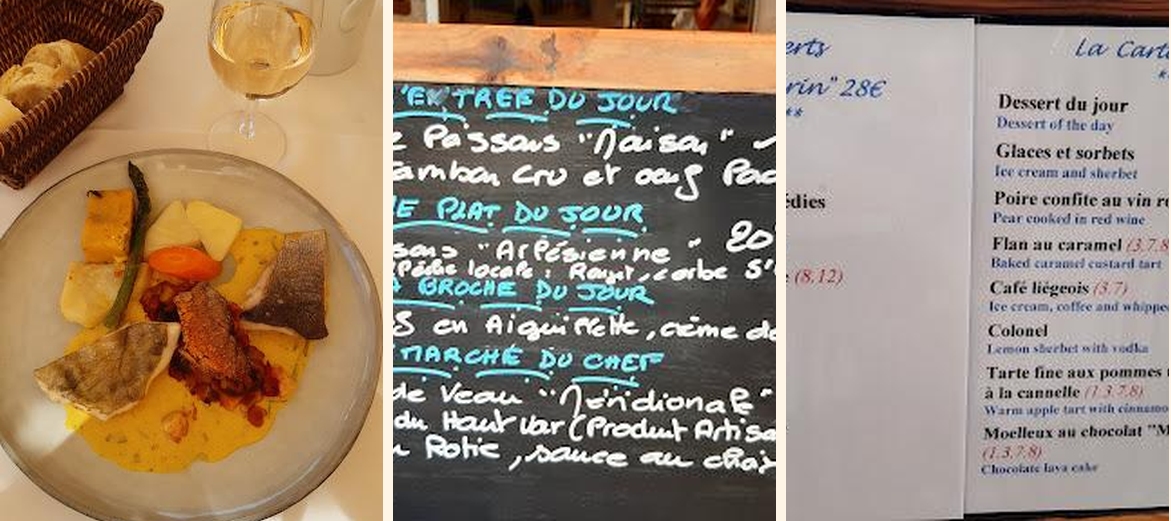 ENTREE DU JOUR
Passous "Naisan"
ambon cru et oeuf Poc
E PLAT DU JOUR
sons "Arlésienne" 20
Pêche locale : Rouget,
BROCHE DU JOUR
S en Aiguillette, crème de
MARCHÉ DU CHEF
de Veau "Méridionale"
du Haut Var (Produit Artisa
Rotie, sauce au choix
erts
rin" 28€
**
édies
(8.12)
La Carte
Dessert du jour
Dessert of the day
Glaces et sorbets
Ice cream and sherbet
Poire confite au vin ro
Pear cooked in red wine
Flan au caramel (3.7.8
Baked caramel custard tart
Café liégeois (3.7)
Ice cream, coffee and whippe
Colonel
Lemon sherbet with vodka
Tarte fine aux pommes
à la cannelle (1.3.7.8)
Warm apple tart with cinnamo
Moelleux au chocolat "M
(1.3.7.8)
Chocolate lava cake